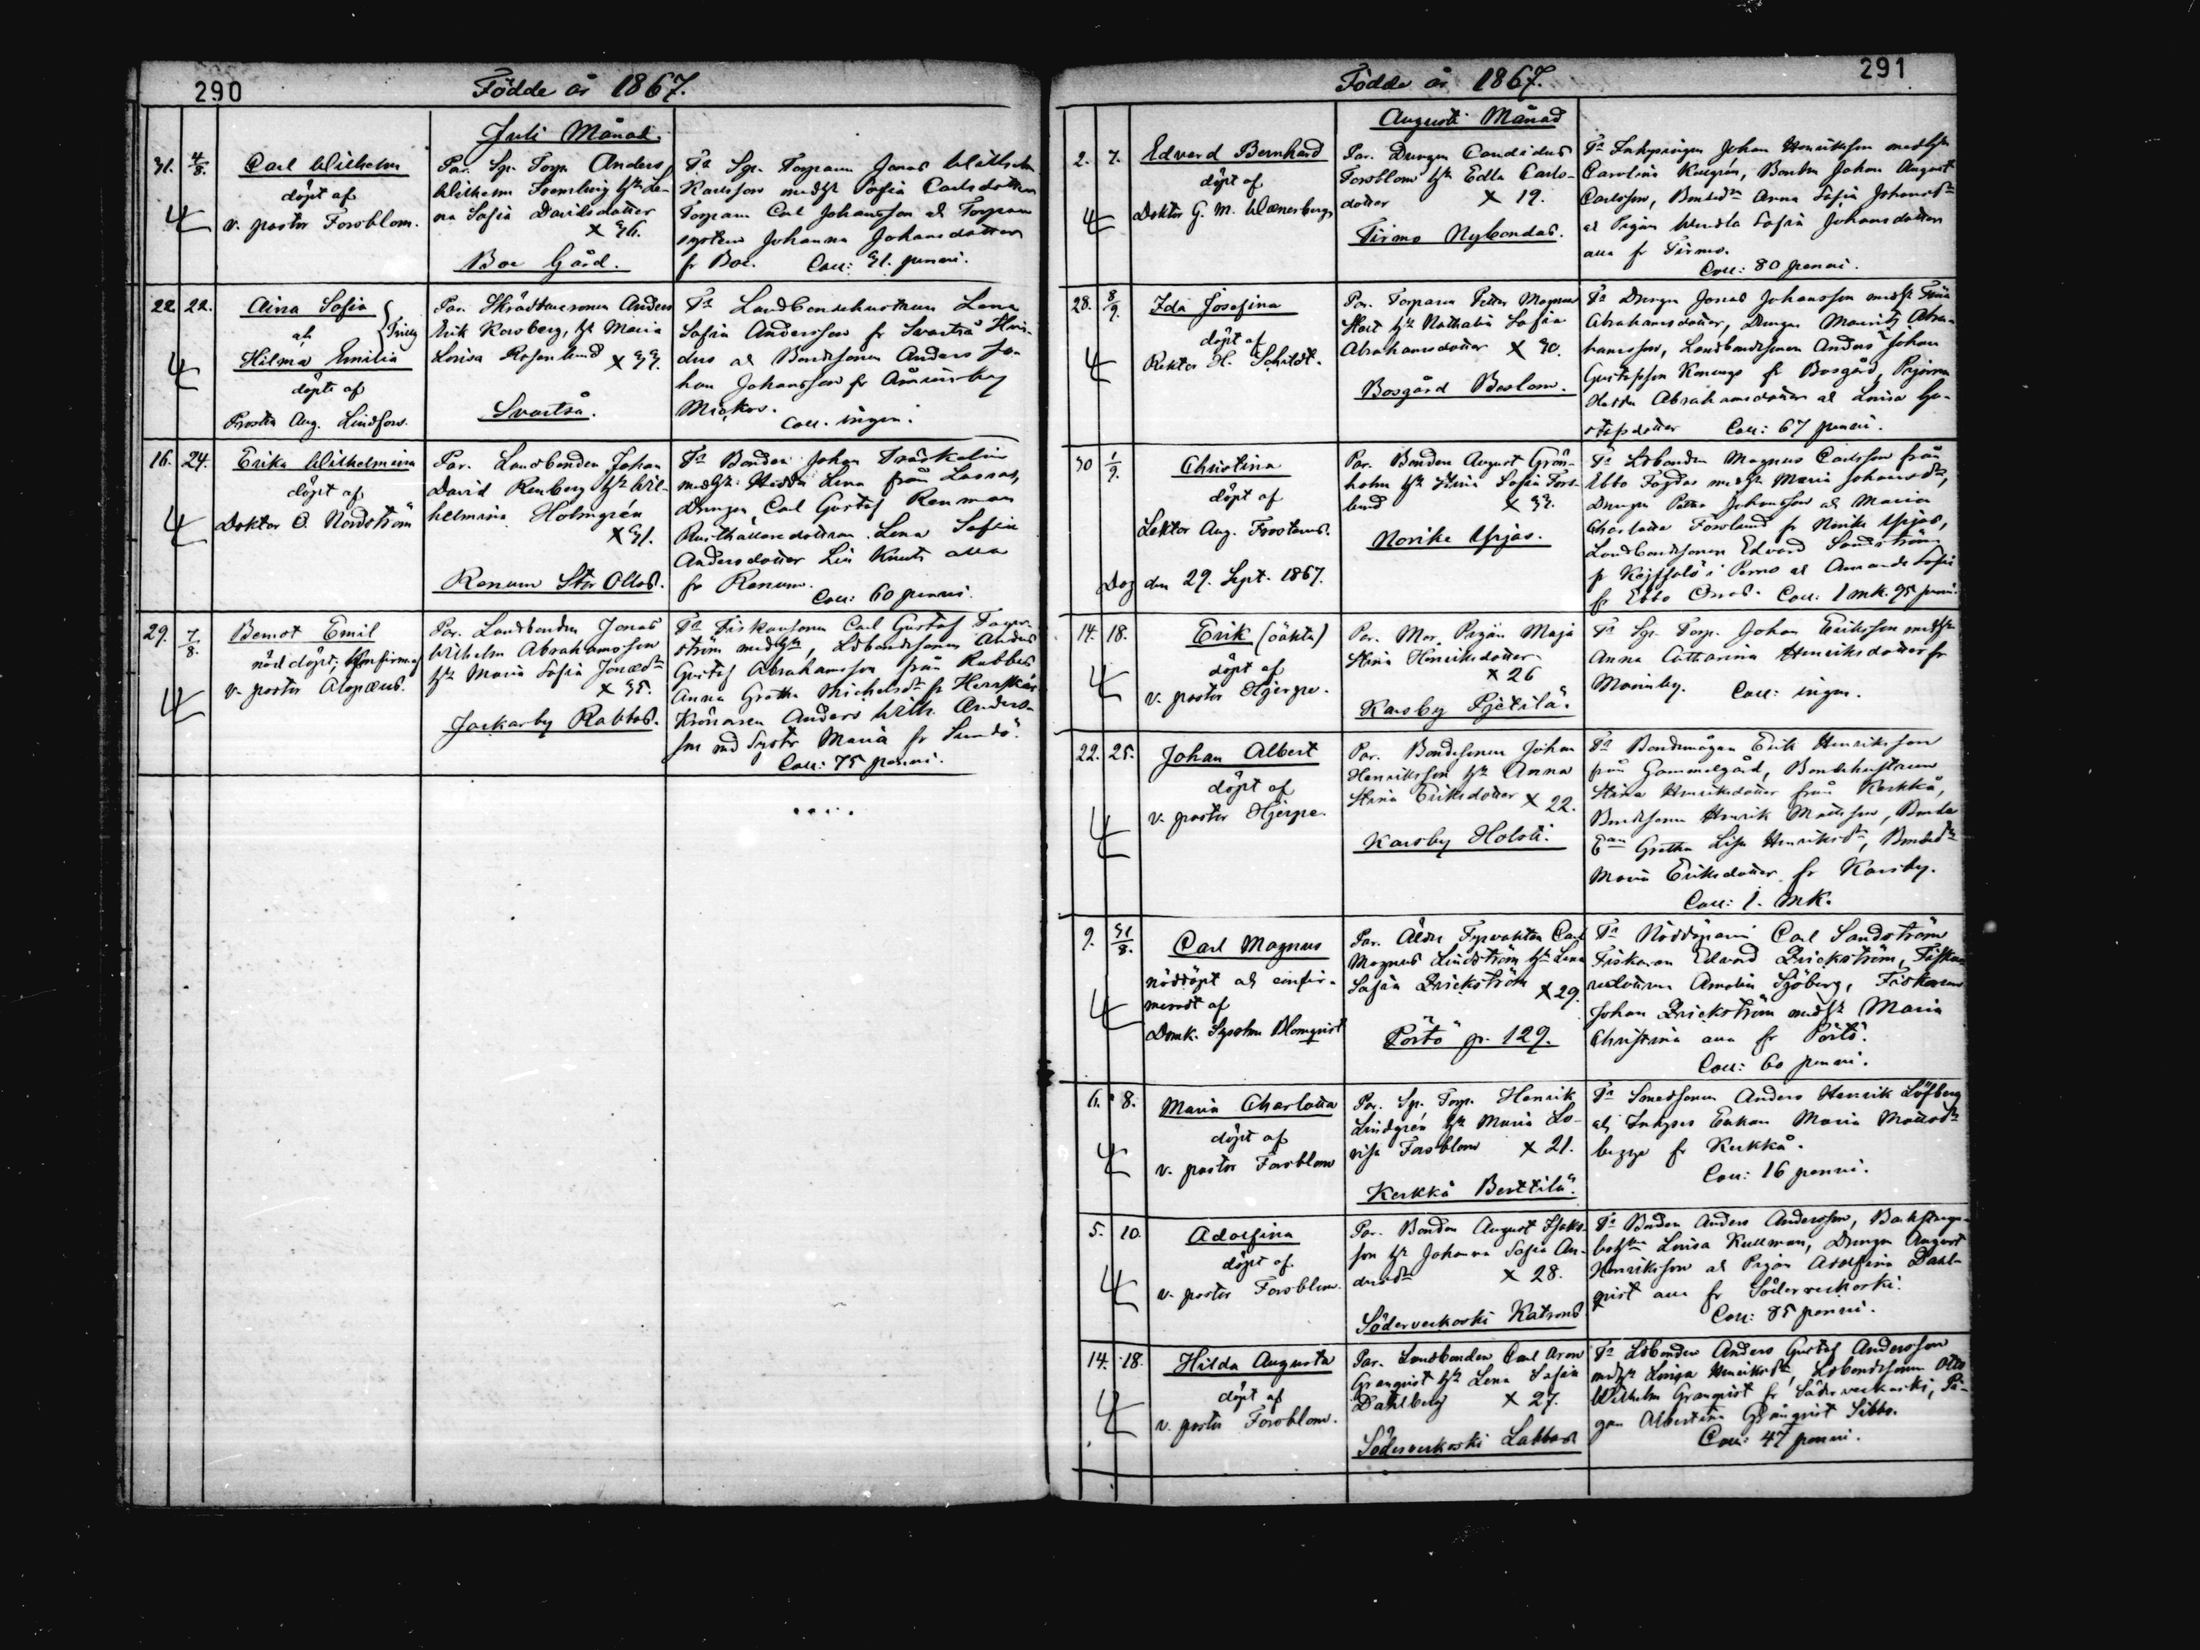 290
Födde år 1867.
Juli Månad.
31. 4/8. Carl Wilhelm
döpt af
v. pastor Forsblom.
Par. Sp. Torp. Anders
Wilhelm Svemling hu Le-
na Sofia Davidsdotter
x 36.
Boe Gård.
Fa Sp. Torparen Jonas Wilhelm
Karlsson med hu Sofia Carlsdotter
Torparen Carl Johansson ah Torpare
systern Johanna Johansdotter
fr Boe. Coll: 31. penni.
22. 22. Aina Sofia
ah
Hilma Emilia
döpte af
Prosten Aug. Lindfors.
Par. Skräddaresonen Anders
Erik Korsberg, hu Maria
Lovisa Rosenlund x 33.
Svartså.
Fa Landbondehustrun Lena
Sofia Andersson fr Svartså
ah Bondesonen Anders Jo-
han Johansson fr
Coll. ingen.
16. 24. Erika Wilhelmina
döpt af
Doktor O. Nordström
Par. Landbonden Johan
David Renberg hu Wil-
helmina Holmgren
x 31.
Renum Stor Ollas.
Fa Bonden Johan Träskelin
med hu Hedda Lena från Lassas,
Drengen Carl Gustaf Renman
Rusthållaredottren Lena Sofia
Andersdotter Lill Knuts alla
fr Renum.
Coll: 60 penni.
29. 7/8. Bernot Emil
nöddöpt, konfirm. af
v. pastor Alopæus.
Par. Landbonden Jonas
Wilhelm Abrahamsson
hu Maria Sofia Jonasdr
x 35.
Jackarby Rabbas.
Fa Fiskaresonen Carl Gustaf Fager-
ström med hu, Ldbondesonen Anders
Gustaf Abrahamsson från Rabbas
Anna Gretha Michelsdr fr
Anders Wilh. Anders-
son md Syster Maria fr Sundö.
Coll: 75 penni.
291
Födde år 1867.
Augusti Månad
2. 7. Edvard Bernhard
döpt af
Doktor G. M. Wænerberg
Par. Drengen Candidus
Forsblom hu Edla Carls-
dotter x 19.
Tirmo Nybondas.
Fa Inhysingen Johan Henriksson med hu
Carolina Kulgrén, Bonden Johan August
Carlsson, Bondedr Anna Sofia Johansdr
ah Pigan Wendla Sofia Johansdotter
alla fr Tirmo.
Coll: 80 penni.
28. 8/9. Ida Josefina
döpt af
Rektor H. Schildt.
Par. Torparen Petter Magnus
Hart hu Nathalia Sofia
Abrahamsdotter x 30.
Bosgård Baslom.
Fa Drengen Jonas Johansson med hu Stina
Abrahamsdotter, Drengen Mauritz Abra-
hamsson, Landbondesonen Anders Johan
Gustafsson fr Bosgård, Pigorna
Hedda Abrahamsdotter ah Lovisa Gu-
stafsdotter Coll: 67 penni.
30 1/9. Christina
döpt af
Lektor Aug. Frosterus.
Dog den 29. Sept. 1867.
Par. Bonden August Grön-
holm hu Stina Sofia Fors-
lund x 33.
Norike Ypjas.
Fa Ldbonden Magnus Carlsson från
Ebbo Fogdas med hu Maria Johansdr,
Drengen Petter Johansson ah Maria
Charlotta Forslund fr Norike Ypjas,
Landbondesonen Edvard Sandström
fr i Perno ah Amanda Sofia
fr Ebbo Coll: 1 mk. 95 penni.
14. 18. Erik (oäkta)
döpt af
v. pastor Hjerpe.
Par. Mor, Pigan Maja
Stina Henriksdotter
x 26
Karsby Pjetilä.
Fa Sp. Torp. Johan Eriksson med hu
Anna Catharina Henriksdotter fr
Moninby. Coll: ingen.
22. 25. Johan Albert
döpt af
v. pastor Hjerpe.
Par. Bondesonen Johan
Henriksson hu Anna
Stina Eriksdotter x 22.
Karsby Holsti.
Fa Bondemågen Erik Henriksson
från Gammelgård, Bondehustrun
Stina Henriksdotter från Kerkkå,
Bondesonen Henrik Mattsson, Bonde
Gretha Lisa Henriksdr, Bondedr
Maria Eriksdotter fr Karsby.
Coll: 1. mk.
9. 31/8. Carl Magnus
nöddöpt ah confir-
meradt af
Domk. Sysslom. Blomqvist
Par. Äldre Fyrvaktaren Carl
Magnus Lindström hu Lena
Sofia Brickström x 29.
Pörtö p. 129.
Fa Nöddöparen Carl Sandström
Fiskaren Edvard Brickström, Fiska-
redottren Amalia Sjöberg, Fiskaren
Johan Brickström med hu Maria
Christina alla fr Pörtö.
Coll: 60 penni.
6. 8. Maria Charlotta
döpt af
v. pastor Forsblom
Par. Sp. Torp. Henrik
Lindgrén hu Maria Lo-
visa Forsblom x 21.
Kerkkå Berttilä.
Fa Smedsonen Anders Henrik Löfberg
ah Inhyses Enkan Maria Mattsdr
begge fr Kerkkå.
Coll: 16 penni.
5. 10. Adolfina
döpt af
v. pastor Forsblom.
Par. Bonden August Isaks-
son hu Johanna Sofia An-
dersdr x 28.
Söderveckoski Katrins
Fa Bonden Anders Andersson, Backstugu-
Lovisa Kullman, Drengen August
Henriksson ah Pigan Adolfina Dahl-
qvist alla fr Söderveckoski.
Coll: 85 penni.
14. 18. Hilda Augusta
döpt af
v. pastor Forsblom.
Par. Landbonden Carl Aron
Granqvist hu Lena Sofia
Dahlberg x 27.
Söderveckoski Labbas
Fa Ldbonden Anders Gustaf Andersson
med hu Lovisa Henriksdr, Ldbondesonen Otto
Wilhelm Granqvist fr Söderveckoski, Pi-
gan Albertina Granqvist Sibbo.
Coll: 47 penni.